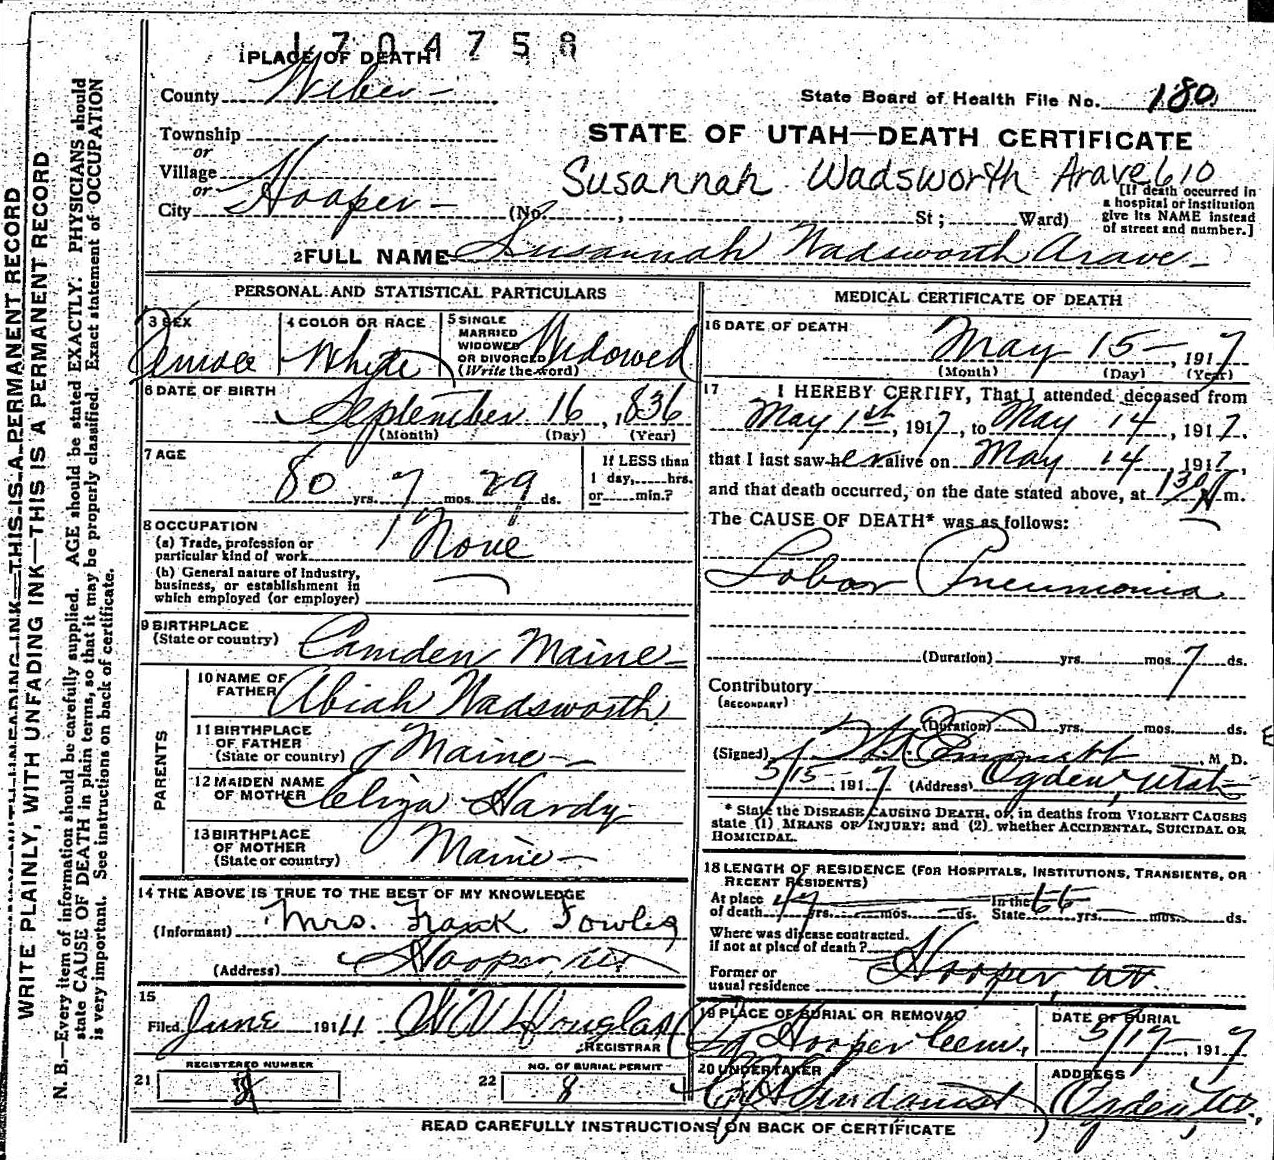 1704758
1 PLACE OF DEATH
County Weber
State Board of Health File No. 180
STATE OF UTAH—DEATH CERTIFICATE
Township
or
Village
or
City Hooper
Susannah Wadsworth Arave 610
(No. , St ; Ward)
[If death occurred in
a hospital or institution
give its NAME instead
of street and number.]
2 FULL NAME Susannah Wadsworth Arave
PERSONAL AND STATISTICAL PARTICULARS
3 SEX Female
4 COLOR OR RACE White
5 SINGLE
MARRIED
WIDOWED
OR DIVORCED Widowed
(Write the word)
6 DATE OF BIRTH
September 16, 1836
(Month) (Day) (Year)
7 AGE
80 yrs. 7 mos. 29 ds.
If LESS than
1 day, hrs.
or min.?
8 OCCUPATION
(a) Trade, profession or
particular kind of work None
(b) General nature of industry,
business, or establishment in
which employed (or employer)
9 BIRTHPLACE
(State or country) Camden Maine
PARENTS
10 NAME OF
FATHER Abiah Wadsworth
11 BIRTHPLACE
OF FATHER
(State or country) Maine
12 MAIDEN NAME
OF MOTHER Eliza Hardy
13 BIRTHPLACE
OF MOTHER
(State or country) Maine
14 THE ABOVE IS TRUE TO THE BEST OF MY KNOWLEDGE
(Informant) Mrs. Frank Fowles
(Address) Hooper, Ut
15
Filed June 191 Douglas
REGISTRAR
REGISTERED NUMBER
21 8
NO. OF BURIAL PERMIT
22 8
MEDICAL CERTIFICATE OF DEATH
16 DATE OF DEATH
May 15 , 1917
(Month) (Day) (Year)
17 I HEREBY CERTIFY, That I attended deceased from
May 1st, 1917, to May 14, 1917,
that I last saw her alive on May 14, 1917,
and that death occurred, on the date stated above, at 130 A m.
The CAUSE OF DEATH* was as follows:
Lobar Pneumonia
(Duration) yrs. mos. 7 ds.
Contributory
(SECONDARY)
(Duration) yrs. mos. ds.
(Signed) , M D.
5/15 1917 (Address) Ogden, Utah
* State the DISEASE CAUSING DEATH, or, in deaths from VIOLENT CAUSES
state (1) MEANS OF INJURY; and (2) whether ACCIDENTAL, SUICIDAL OR
HOMICIDAL.
18 LENGTH OF RESIDENCE (FOR HOSPITALS, INSTITUTIONS, TRANSIENTS, OR
RECENT RESIDENTS)
At place
of death 47 yrs. mos. ds.
In the
State 66 yrs. mos. ds.
Where was disease contracted.
if not at place of death?
Former or
usual residence Hooper, Ut.
19 PLACE OF BURIAL OR REMOVAL
Hooper Cem.
DATE OF BURIAL
5/17 , 1917
20 UNDERTAKER
Lindquist
ADDRESS
Ogden, Ut.
READ CAREFULLY INSTRUCTIONS ON BACK OF CERTIFICATE
WRITE PLAINLY, WITH UNFADING INK—THIS IS A PERMANENT RECORD
WRITE PLAINLY, WITH UNFADING INK—THIS IS A PERMANENT RECORD
N. B.—Every item of information should be carefully supplied. AGE should be stated EXACTLY: PHYSICIANS should
state CAUSE OF DEATH in plain terms, so that it may be properly classified. Exact statement of OCCUPATION
is very important. See instructions on back of certificate.